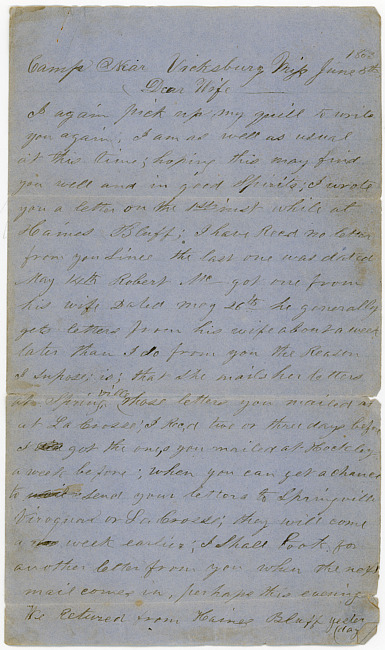 1863
Camp Near Vicksburg Miss June 8th
Dear Wife
I again pick up my quill to write
you again; I am as well as usual
at this time; hoping this may find
you well and in good Spirits; I wrote
you a letter on the 1st inst while at
Haines Bluff; I have Recd no letter
from you Since the last one was dated
May 14th Robert Mc got one from
his wife Dated may 20th he generally
gets letters from his wife about a week
later than I do from you the Reason
I supose; is; that she mails her letters
at Springville those letters you mailed
at La Crosse; I Recd two or three days before
I got the ones you mailed at
a week before; when you can get a chance
to send your letters to Springville
Viroqua or La Crosse; they will come
a week earlier; I Shall look, for
another letter from you when the next
mail comes in, perhaps this evening
We retured from Haines Bluff yester
day